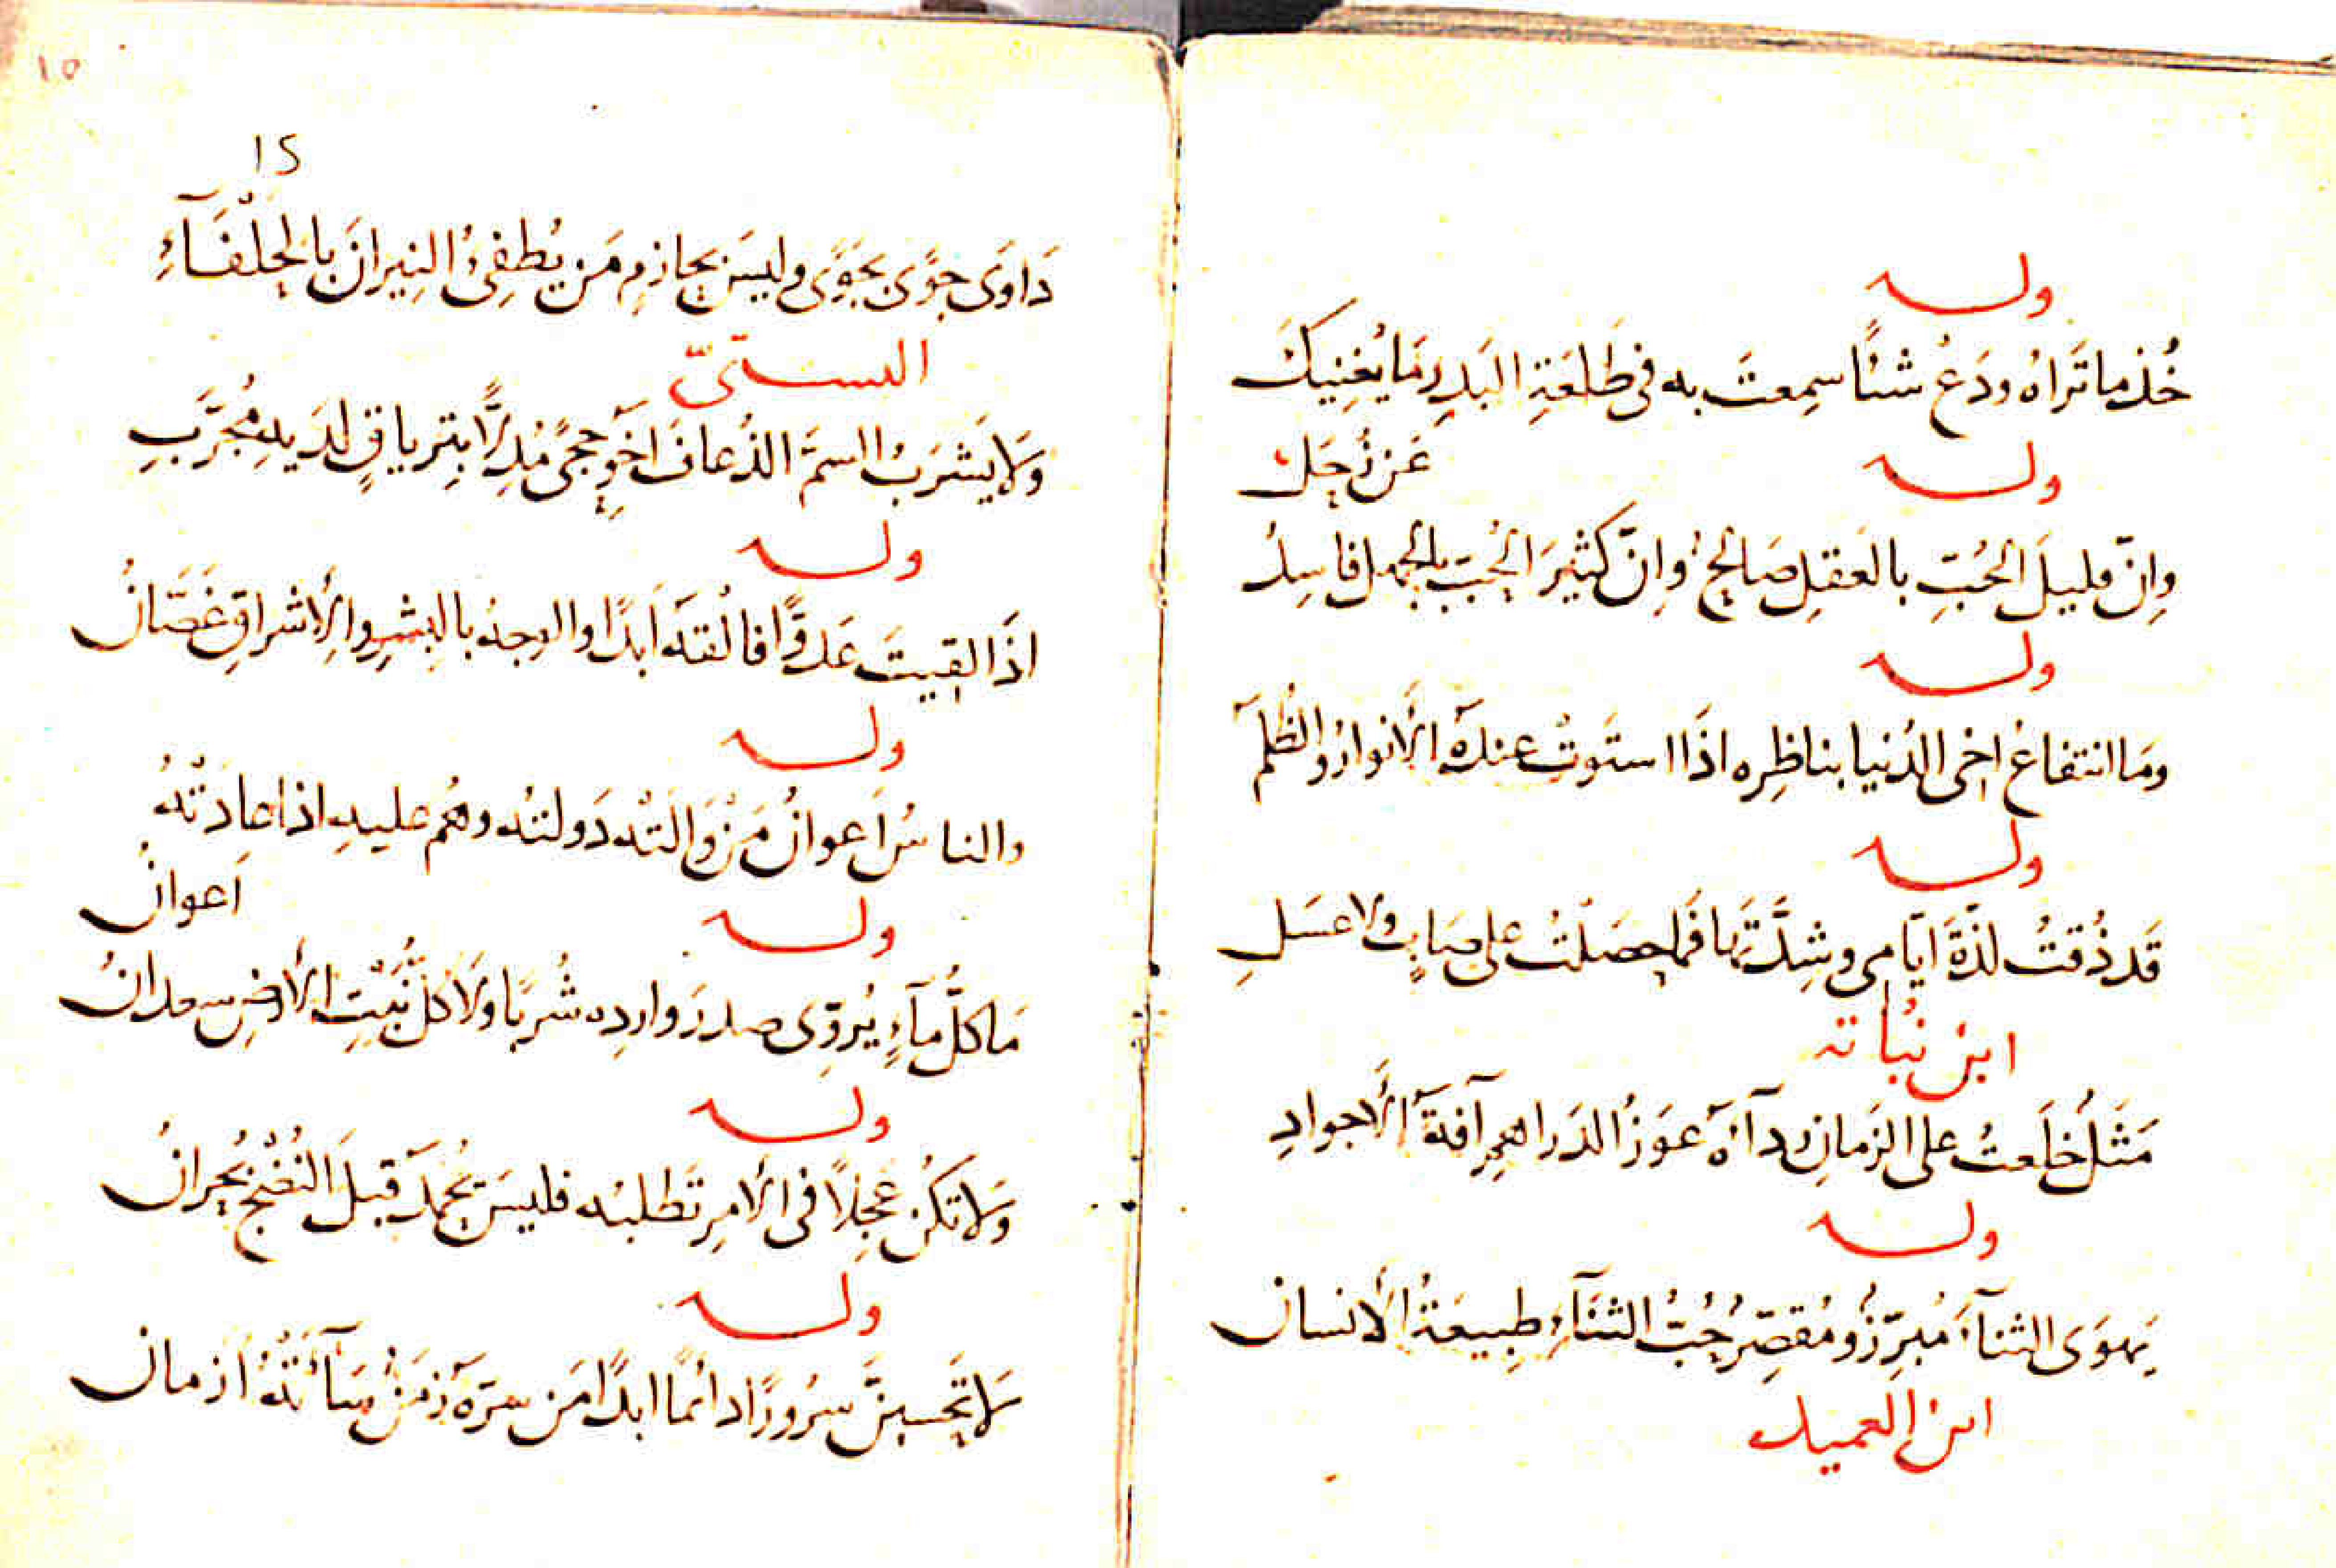 وله
خُذ ما تَراهُ ودَعْ شئًا سمِعتَ به فى طَلعَةِ البَدرِ مَا يُغنِيكَ
عَن زُحَل
وله
وانّ قليلَ الحُبّ بالعَقلِ صَالحٌ وانّ كثيرَ الحُبّ بالجهل فاسِدُ
وله
ومَا انتفاعُ اخى الدُنيا بناظِرِه اذَا استَوتْ عندَهُ الأنوارُ والظُلَمُ
وله
قَد ذُقتُ لذّةَ ايّامى وشِدَّتَها فَما حصَلتُ على صَابٍ ولا عسَلِ
ابن نُباته
مَثَلٌ خلَعتُ على الزمانِ ردآءَهُ عوَزُ الدَراهمِ آفَةُ الأجوادِ
وله
يَهوَى الثنآءَ مُبرِّزٌ ومُقصِّرٌ حُبُّ الثنَآءِ طبِيعَةُ الأنسان
ابن العميد
١٥
١٥
دَاوَى جوًى بجَوًى وليسَ بحازمٍ مَن يُطفِئُ النِيرانَ بالحَلْفَآءِ
البستىّ
ولَا يَشرَبُ السمَّ الذُعافَ اخو حجىً مُدِلًّا بتِرياقٍ لدَيهِ مُجَرَّبِ
وله
اذَا لقِيتَ عَدوًّا فالْقَه اَبدًا والوجهُ بالبِشرِ والأشراقِ غَصَّانُ
وله
والناسُ اَعوانُ مَنْ وَالَتْه دَولتُه وهُم عليهِ اذا عادَتْهُ
اَعوانُ
وله
مَا كلُّ مآءٍ يُروّى صدرَ واردِه شُربًا ولَا كلُّ نَبْتِ الأرضِ سعدانُ
وله
ولَا تكُن عَجِلًا فى الأمرِ تَطلبُه فليسَ يُحمَدُ قبلَ النُضْجِ بُحرانُ
وله
لَا تَحسبنَّ سرُورًا دائمًا ابدًا مَن سرَّهُ زمَنٌ سَآءَتْهُ اَزمانُ